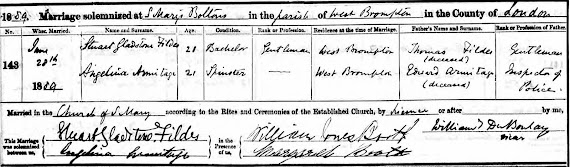 1889. Marriage solemnized at S. Mary's Boltons in the parish of West Brompton in the County of London
No. When Married. Name and Surname. Age. Condition. Rank or Profession. Residence at the time of Marriage. Father's Name and Surname. Rank or Profession of Father.
143 June 28th 1889 Stuart Gladstone Fildes 28 Bachelor Gentleman West Brompton Thomas Fildes (deceased) Gentleman
Angelina Armitage 21 Spinster — West Brompton Edward Armitage (deceased) Inspector of Police
Married in the Church of S. Mary according to the Rites and Ceremonies of the Established Church, by licence or after by me,
This Marriage was solemnized between us, Stuart Gladstone Fildes Angelina Armitage In the Presence of us, William Jones Booth Margaret Booth William T Du Boulay Vicar